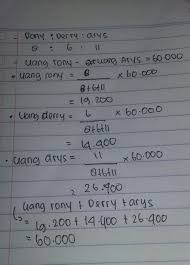 = Rony : Derry : arys
8 : 6 : 11
- uang rony - uang Arys = 60.000
• uang rony = 8 x 60.000
8+6+11
= 19.200
• uang Derry = 6 x 60.000
8+6+11
= 14.400
• uang arys = 11 x 60.000
8+6+11
= 26.400
uang rony + Derry + arys
= 19.200 + 14.400 + 26.400
= 60.000